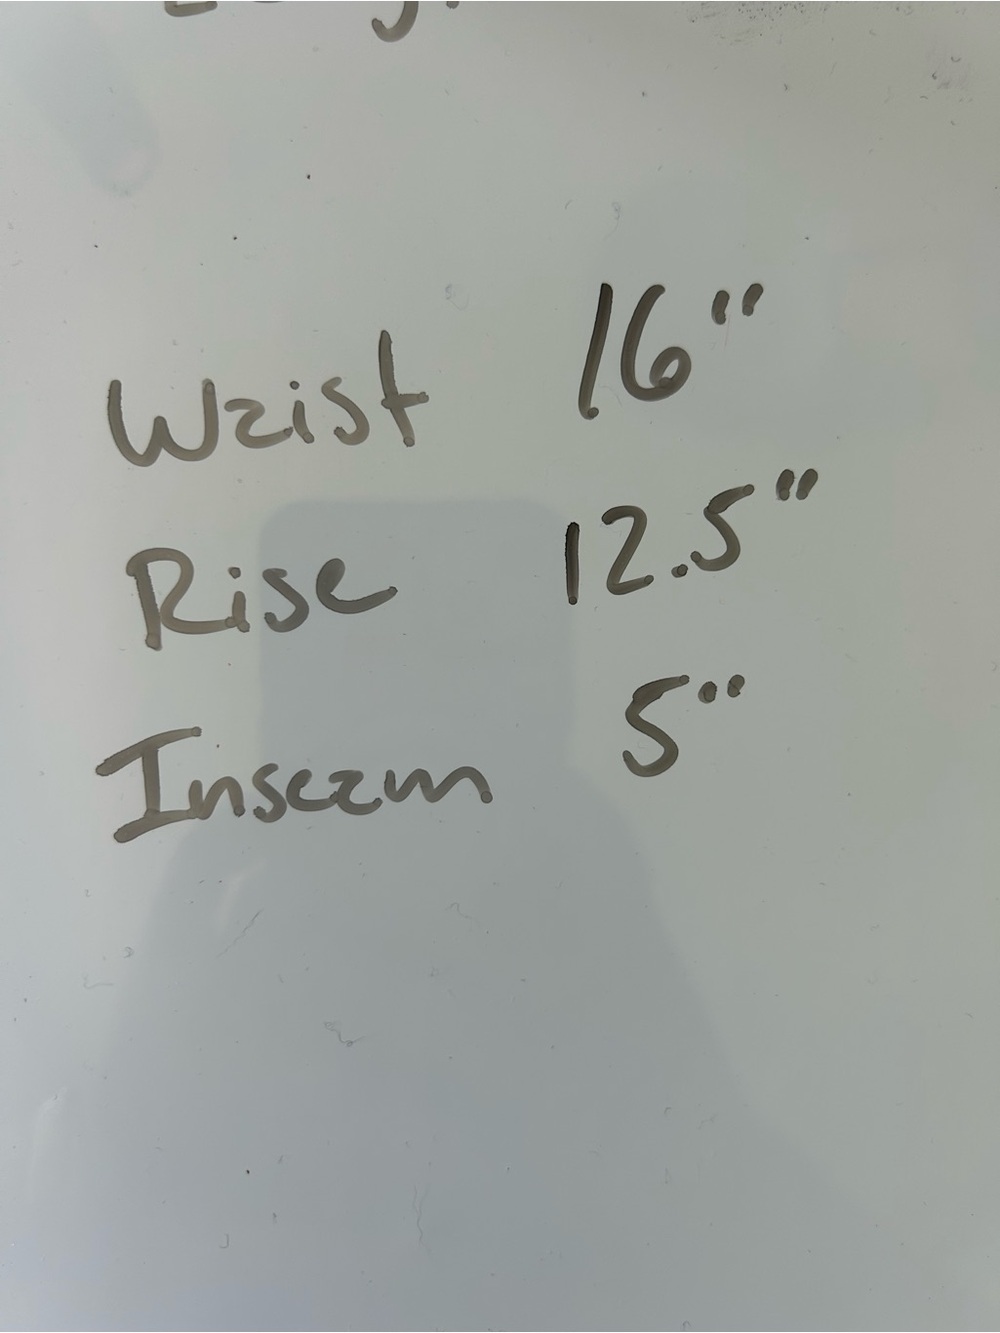 Waist 16"
Rise 12.5"
Inseam 5"